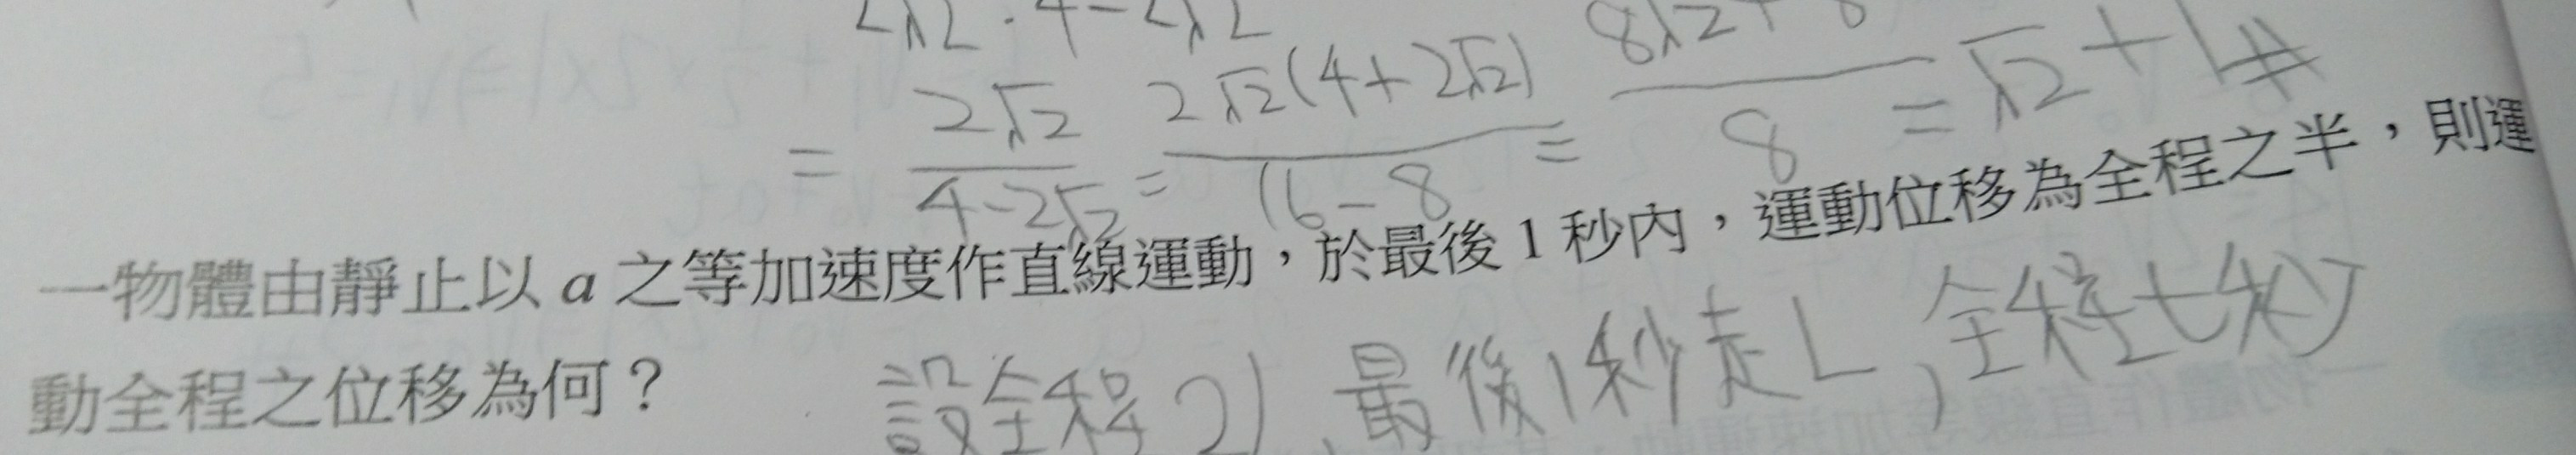 = 2√2 / (4-2√2) = 2√2(4+2√2) / (16-8) = 8√2+8 / 8 = √2+1 #
一物體由靜止以 a 之等加速度作直線運動，於最後 1 秒內，運動位移為全程之半，則運
動全程之位移為何？
設全程2l，最後1秒走L，全程t秒